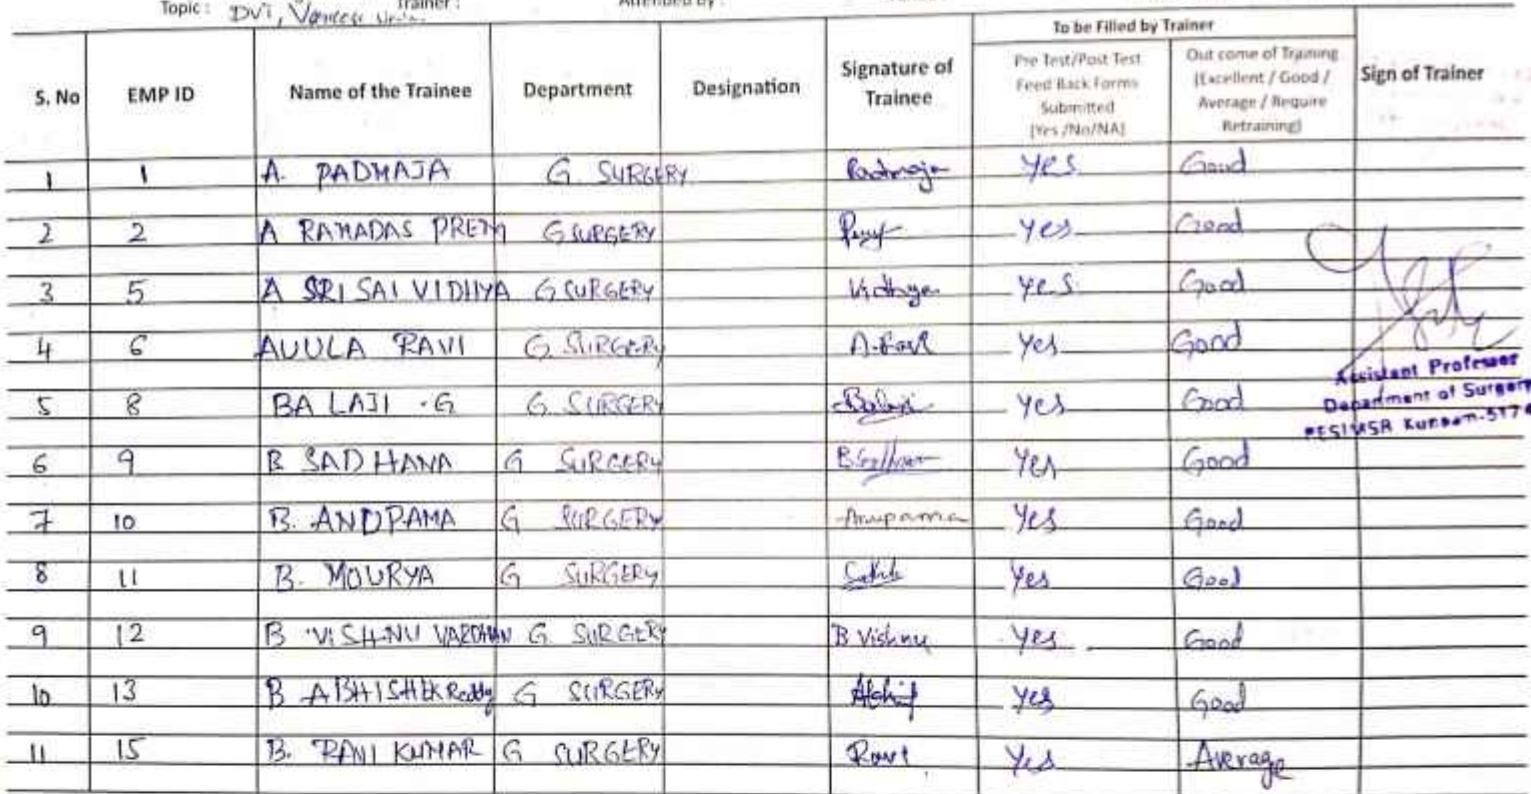 Topic : DVT, Trainer : Attended by :
To be Filled by Trainer
S. No EMP ID Name of the Trainee Department Designation Signature of Trainee Pre Test/Post Test Feed Back Forms Submitted [Yes /No/NA] Out come of Training (Excellent / Good / Average / Require Retraining) Sign of Trainer
1 1 A. PADMAJA G. SURGERY Padmaja Yes Good
2 2 A RAMADAS PREM G SURGERY Yes Good
3 5 A SRI SAI VIDHYA G SURGERY Vidhya Yes Good
4 6 AVULA RAVI G. SURGERY A. Ravi Yes Good
5 8 BALAJI .G G. SURGERY Balaji Yes Good
Assistant Professor
Department of Surgery
PESIMSR Kuppam-517
6 9 B SADHANA G SURGERY Yes Good
7 10 B. ANUPAMA G SURGERY Anupama Yes Good
8 11 B. MOURYA G SURGERY Yes Good
9 12 B VISHNU VARDHAN G SURGERY B Vishnu Yes Good
10 13 B ABHISHEK Reddy G SURGERY Yes Good
11 15 B. RAVI KUMAR G SURGERY Ravi Yes Average